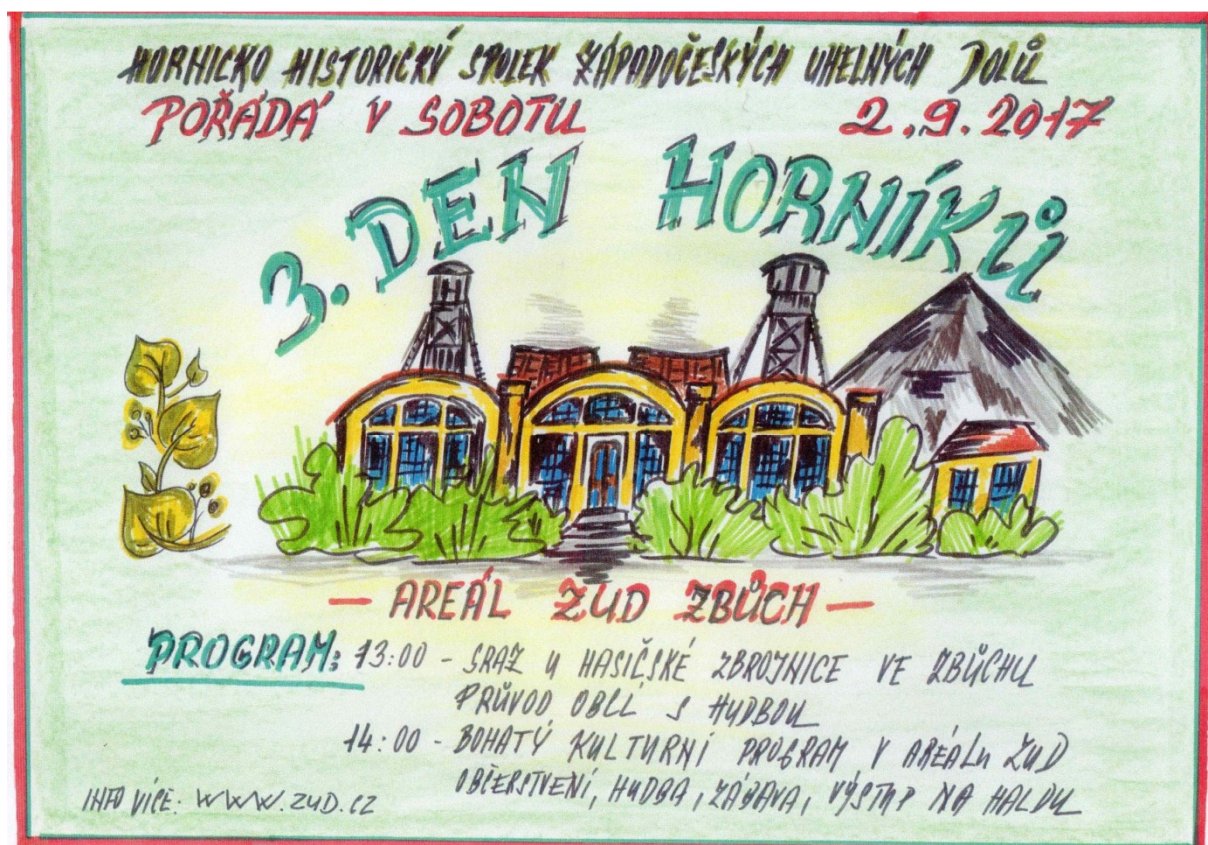 HORNICKO HISTORICKÝ SPOLEK ZÁPADOČESKÝCH UHELNÝCH DOLŮ
POŘÁDÁ V SOBOTU 2.9.2017
3. DEN HORNÍKŮ
— AREÁL ZUD ZBŮCH —
PROGRAM: 13:00 - SRAZ U HASIČSKÉ ZBROJNICE VE ZBŮCHU
PRŮVOD OBCÍ S HUDBOU
14:00 - BOHATÝ KULTURNÍ PROGRAM V AREÁLU ZUD
OBČERSTVENÍ, HUDBA, ZÁBAVA, VÝSTUP NA HALDU
INFO VÍCE: WWW.ZUD.CZ